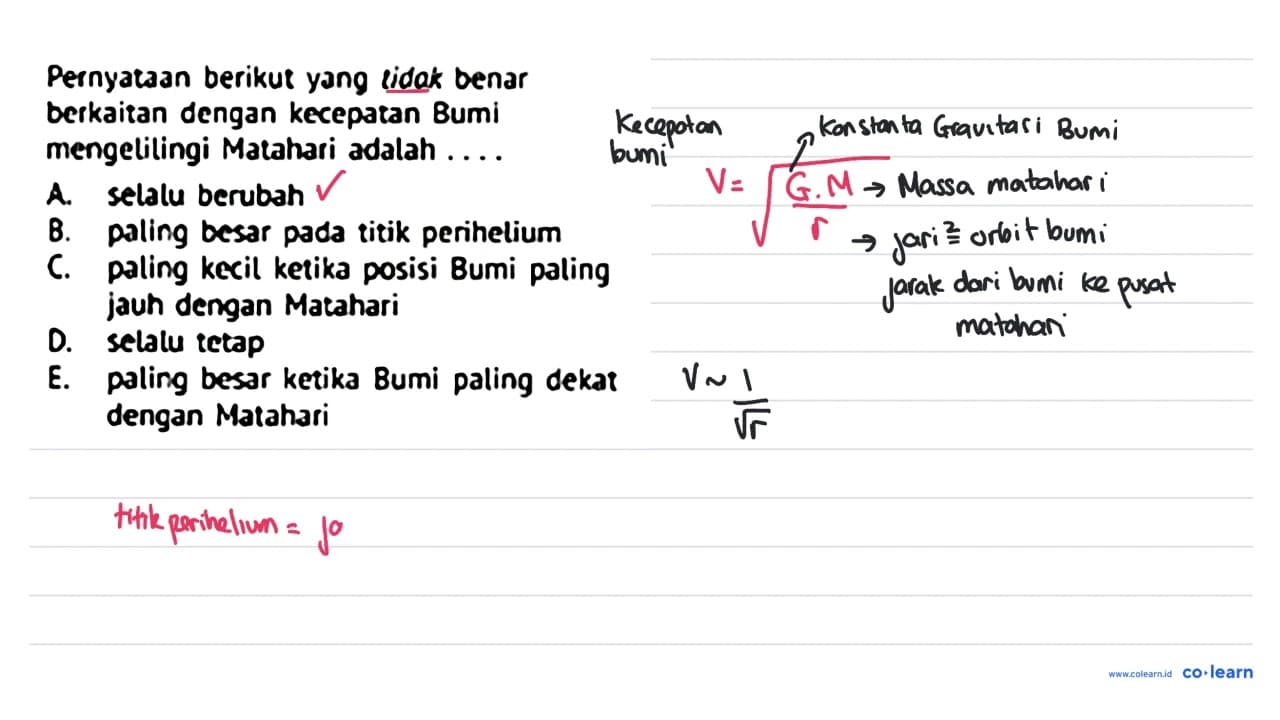 Pernyataan berikut yang tidak benar
berkaitan dengan kecepatan Bumi
mengelilingi Matahari adalah ....
A. selalu berubah ✓
B. paling besar pada titik perihelium
C. paling kecil ketika posisi Bumi paling
jauh dengan Matahari
D. selalu tetap
E. paling besar ketika Bumi paling dekat
dengan Matahari
Kecepatan
bumi
Konstanta Gravitasi Bumi
V = √(G.M / r)
→ Massa matahari
→ jari² orbit bumi
jarak dari bumi ke pusat
matahari
V ~ 1/√r
titik perihelium = ja
www.colearn.id co·learn